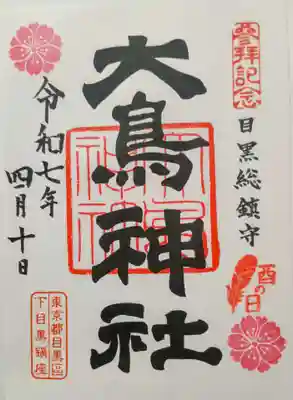 參拝記念
目黒総鎮守
酉の日
大鳥神社
令和七年
四月十日
東京都目黒區
下目黒鎮座